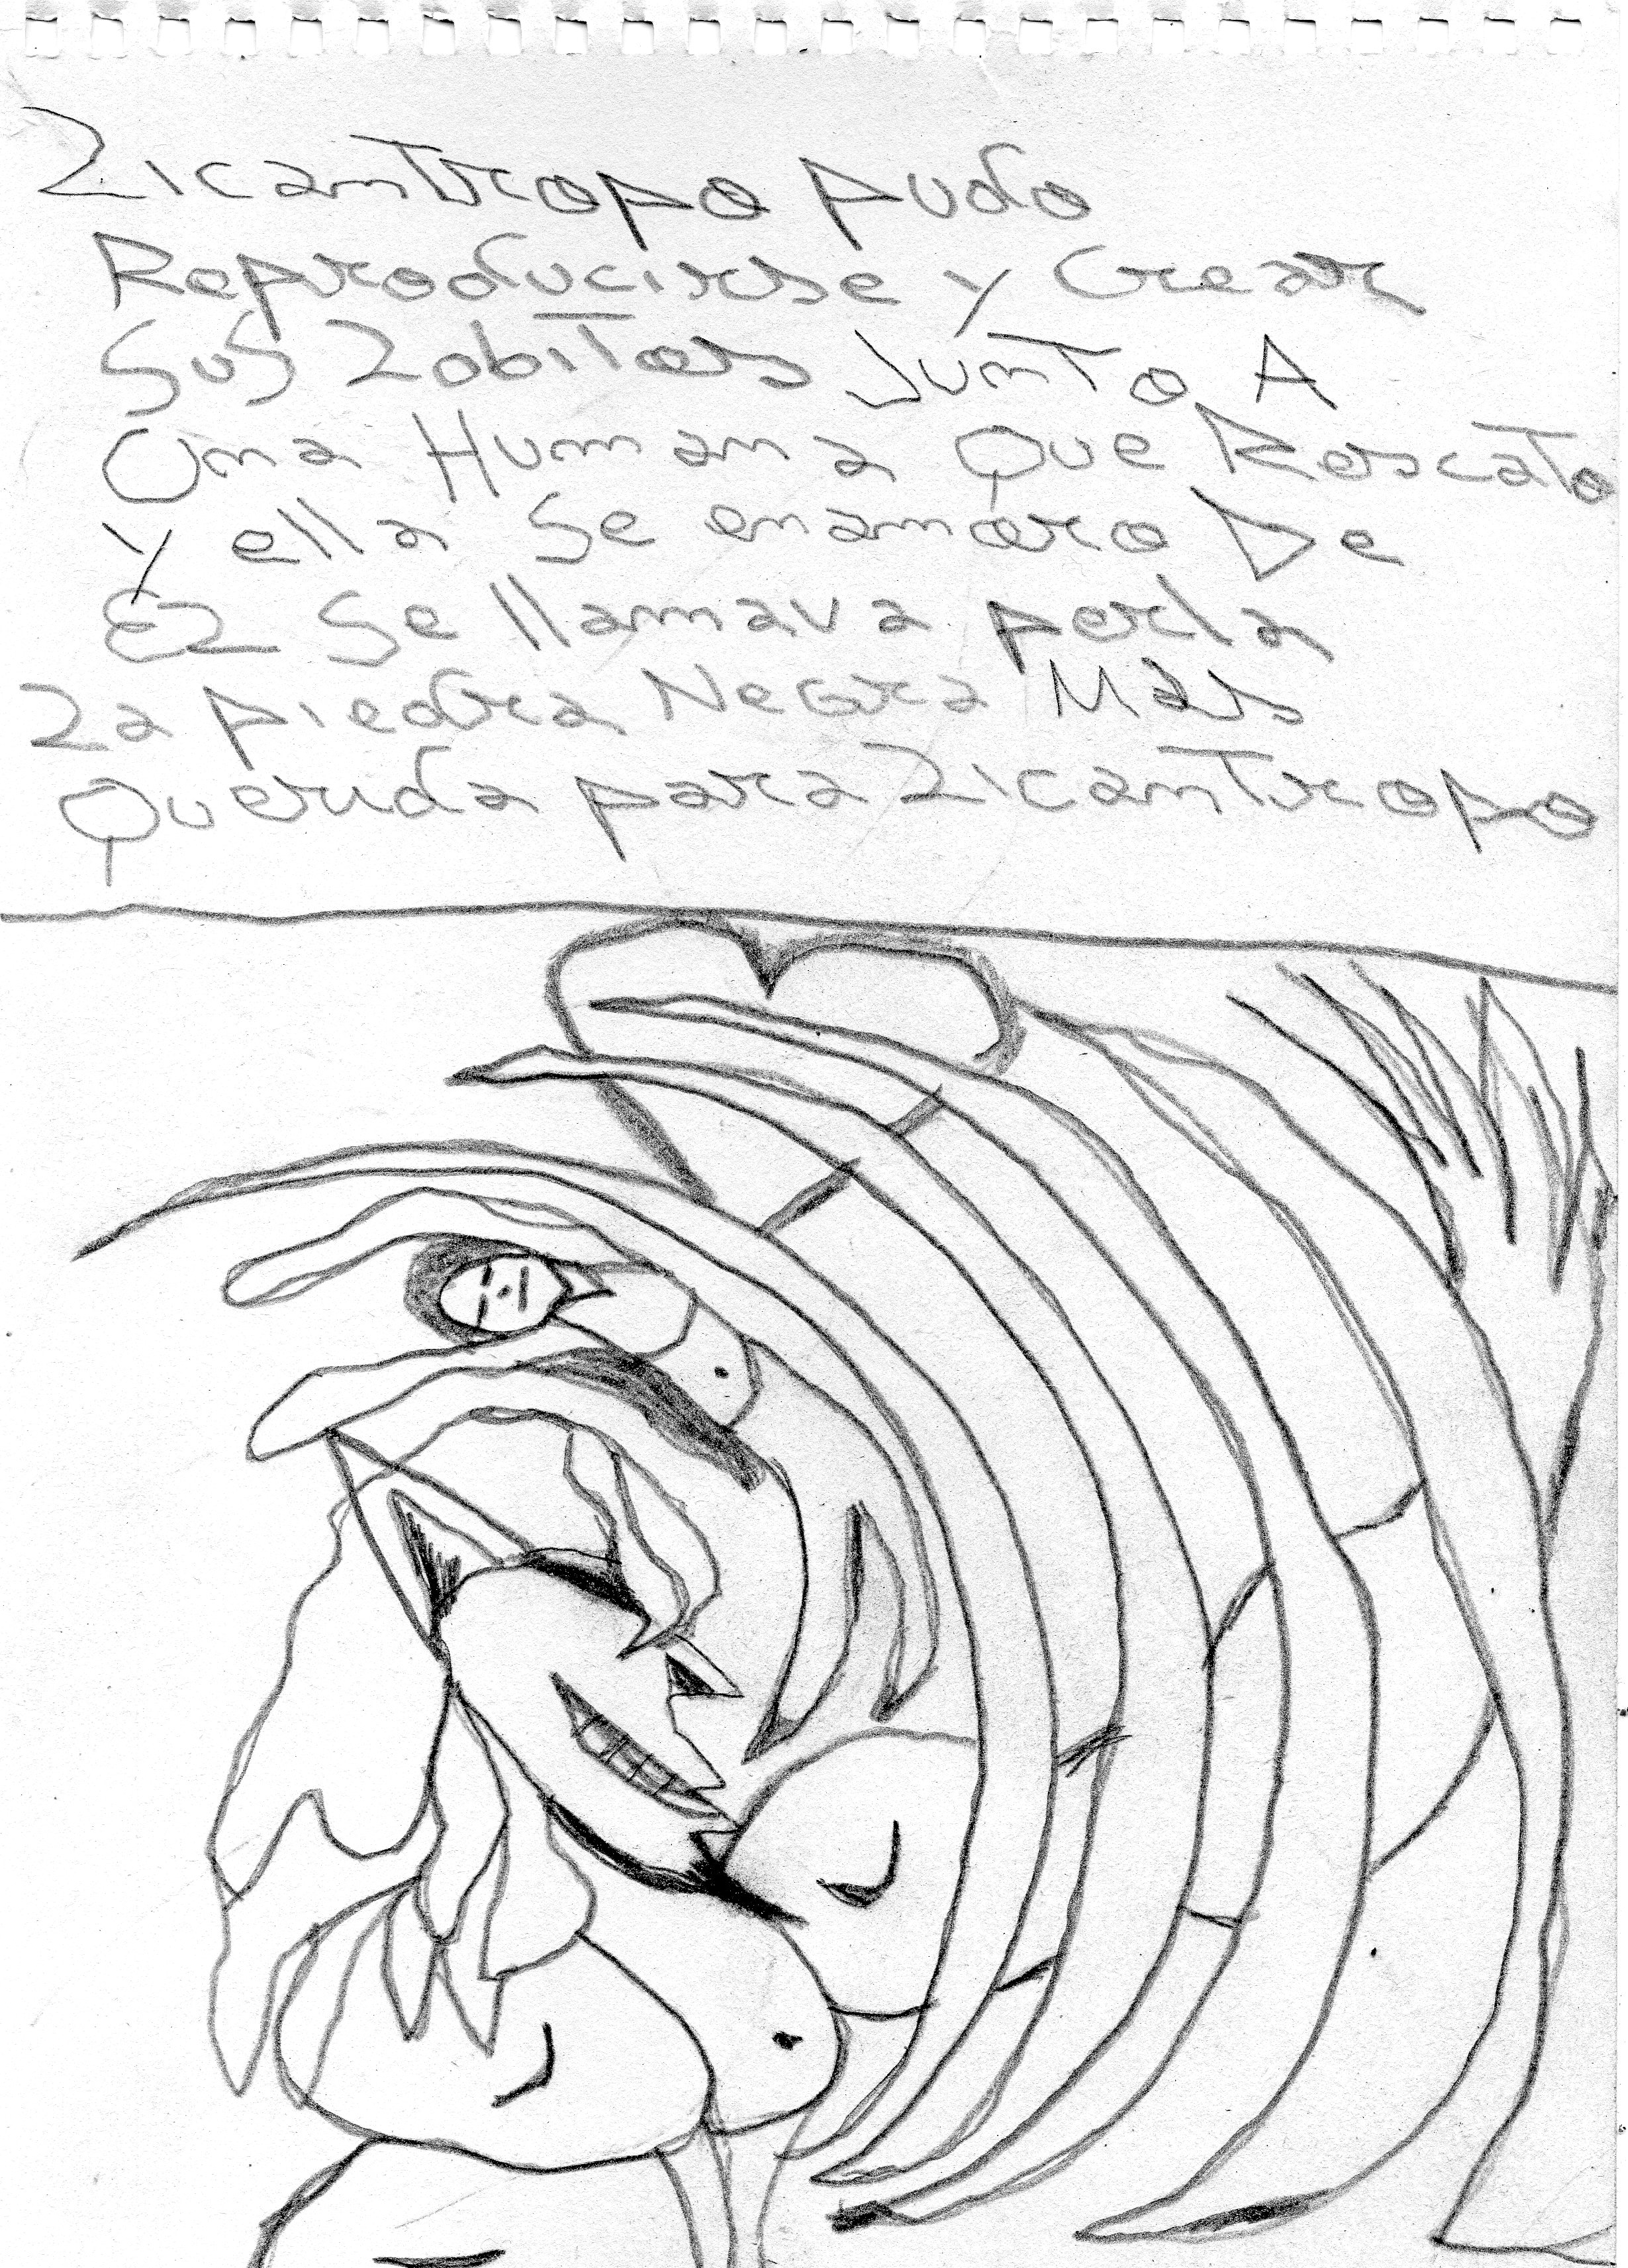 Licantropo pudo
Reproducirse y Crear
Sus Lobitos Junto A
Una Humana Que Rescato
y ella Se enamoro De
EL Se llamava perla
La piedra Negra Mas
Querida para Licantropo